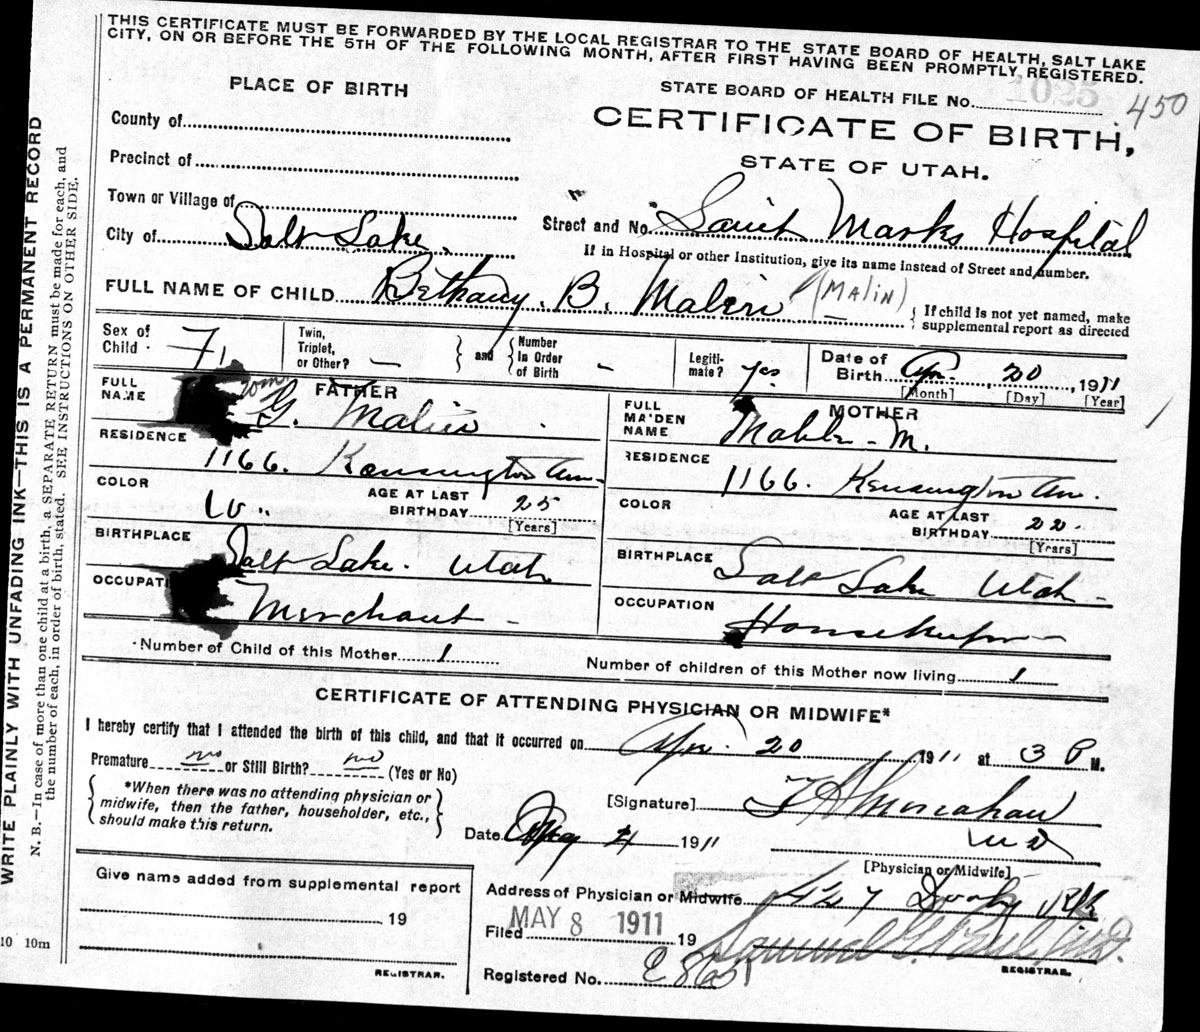 THIS CERTIFICATE MUST BE FORWARDED BY THE LOCAL REGISTRAR TO THE STATE BOARD OF HEALTH, SALT LAKE
CITY, ON OR BEFORE THE 5TH OF THE FOLLOWING MONTH, AFTER FIRST HAVING BEEN PROMPTLY REGISTERED.
WRITE PLAINLY WITH UNFADING INK—THIS IS A PERMANENT RECORD
N. B.—In case of more than one child at a birth, a SEPARATE RETURN must be made for each, and
the number of each, in order of birth, stated. SEE INSTRUCTIONS ON OTHER SIDE.
PLACE OF BIRTH
STATE BOARD OF HEALTH FILE No. 1025
450
CERTIFICATE OF BIRTH,
STATE OF UTAH.
County of
Precinct of
Town or Village of
City of Salt Lake.
Street and No. Saint Marks Hospital
If in Hospital or other Institution, give its name instead of Street and number.
FULL NAME OF CHILD Bethany. B. Malin (MALIN)
If child is not yet named, make
supplemental report as directed
Sex of Child F.
Twin, Triplet, or Other? —
and
Number In Order of Birth -
Legiti- mate? yes
Date of Birth Apr. 20, 1911
[Month] [Day] [Year]
FATHER
FULL NAME G. Malin
RESIDENCE
1166. Kensington Ave.
COLOR W.
AGE AT LAST BIRTHDAY 25
[Years]
BIRTHPLACE
Salt Lake. Utah
OCCUPATI
Merchant -
MOTHER
FULL MAIDEN NAME Mable - M.
RESIDENCE
1166. Kensington Av.
COLOR
AGE AT LAST BIRTHDAY 22.
[Years]
BIRTHPLACE
Salt Lake Utah -
OCCUPATION
Housekeeper
Number of Child of this Mother 1
Number of children of this Mother now living 1
CERTIFICATE OF ATTENDING PHYSICIAN OR MIDWIFE*
I hereby certify that I attended the birth of this child, and that it occurred on Apr. 20 1911 at 3 P M.
Premature no or Still Birth? no (Yes or No)
*When there was no attending physician or
midwife, then the father, householder, etc.,
should make this return.
[Signature]
M D
Date 1911
[Physician or Midwife]
Address of Physician or Midwife
Give name added from supplemental report
19
REGISTRAR.
Filed MAY 8 1911 19
REGISTRAR.
Registered No.
10 10m